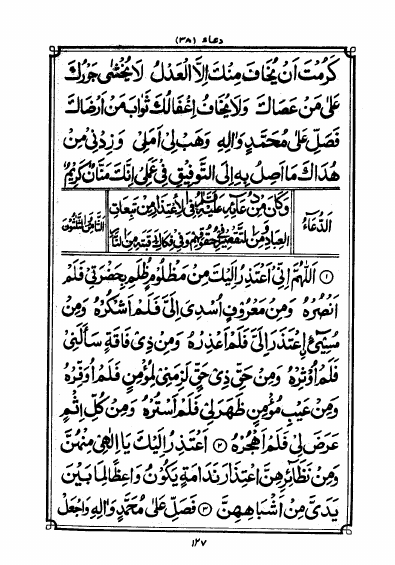 دعاء (٣٨)
كَرُمْتَ اَنْ يُخَافَ مِنْكَ اِلَّا الْعَدْلُ لَا يُخْشٰى جَوْرُكَ
عَلٰى مَنْ عَصَاكَ وَلَا يُخَافُ اِغْفَالُكَ ثَوَابَ مَنْ اَرْضَاكَ
فَصَلِّ عَلٰى مُحَمَّدٍ وَاٰلِهٖ وَهَبْ لِىْ اَمَلِىْ وَزِدْنِىْ مِنْ
هُدَاكَ مَا اَصِلُ بِهٖ اِلَى التَّوْفِيْقِ فِىْ عَمَلِىْ اِنَّكَ مَنَّانٌ كَرِيْمٌ
اَلدُّعَاءُ
وَكَانَ مِنْ دُعَائِهٖ عَلَيْهِ السَّلَامُ فِى الْاِعْتِذَارِ مِنْ تَبِعَاتِ
الْعِبَادِ وَمِنَ التَّقْصِيْرِ فِىْ حُقُوْقِهِمْ وَفِىْ فَكَاكِ رَقَبَتِهٖ مِنَ النَّارِ
الثَّامِنُ وَالثَّلٰثُوْنَ
① اَللّٰهُمَّ اِنِّىْ اَعْتَذِرُ اِلَيْكَ مِنْ مَظْلُوْمٍ ظُلِمَ بِحَضْرَتِىْ فَلَمْ
اَنْصُرْهُ وَمِنْ مَعْرُوْفٍ اُسْدِىَ اِلَىَّ فَلَمْ اَشْكُرْهُ وَمِنْ
مُسِيْٓئٍ اِعْتَذَرَ اِلَىَّ فَلَمْ اَعْذِرْهُ وَمِنْ ذِىْ فَاقَةٍ سَاَلَنِىْ
فَلَمْ اُوْثِرْهُ وَمِنْ حَقِّ ذِىْ حَقٍّ لَزِمَنِىْ لِمُؤْمِنٍ فَلَمْ اُوَفِّرْهُ
وَمِنْ عَيْبِ مُؤْمِنٍ ظَهَرَ لِىْ فَلَمْ اَسْتُرْهُ وَمِنْ كُلِّ اِثْمٍ
عَرَضَ لِىْ فَلَمْ اَهْجُرْهُ ② اَعْتَذِرُ اِلَيْكَ يَا اِلٰهِىْ مِنْهُنَّ
وَمِنْ نَظَائِرِهِنَّ اعْتِذَارَ نَدَامَةٍ يَكُوْنُ وَاعِظًا لِمَا بَيْنَ
يَدَىَّ مِنْ اَشْبَاهِهِنَّ ③ فَصَلِّ عَلٰى مُحَمَّدٍ وَاٰلِهٖ وَاجْعَلْ
١٢٧